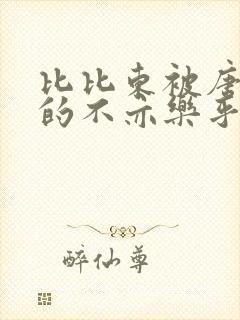 比比东被唐
的不亦樂乎
醉仙尊